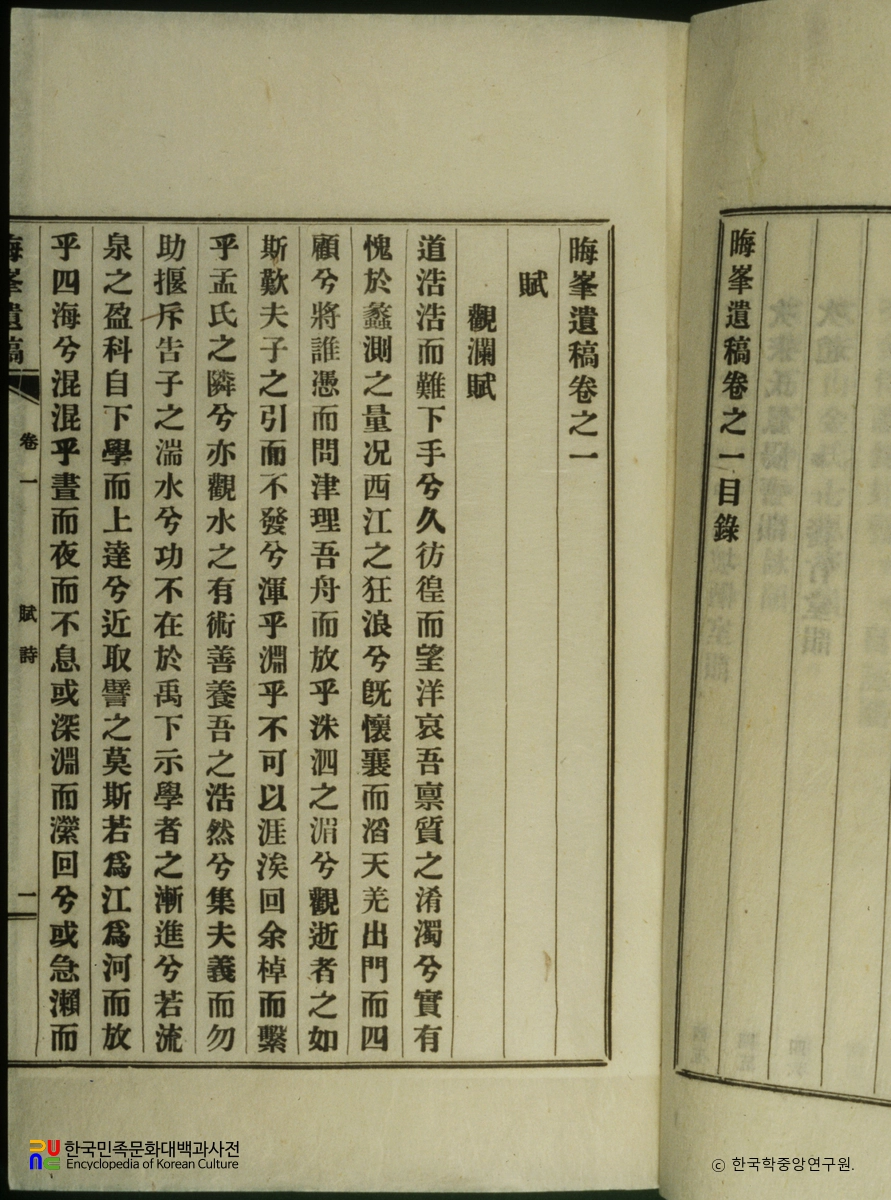 晦峯遺稿卷之一目錄
晦峯遺稿卷之一
賦
觀瀾賦
道浩浩而難下手兮久彷徨而望洋哀吾禀質之淆濁兮實有
愧於蠡測之量况西江之狂浪兮旣懷襄而滔天羌出門而四
顧兮將誰憑而問津理吾舟而放乎洙泗之湄兮觀逝者之如
斯歎夫子之引而不發兮渾乎淵乎不可以涯涘回余棹而繫
乎孟氏之隣兮亦觀水之有術善養吾之浩然兮集夫義而勿
助揠斥告子之湍水兮功不在於禹下示學者之漸進兮若流
泉之盈科自下學而上達兮近取譬之莫斯若爲江爲河而放
乎四海兮混混乎晝而夜而不息或深淵而瀠回兮或急瀨而
晦峯遺稿
卷一
賦詩
一
한국민족문화대백과사전
Encyclopedia of Korean Culture
ⓒ 한국학중앙연구원.